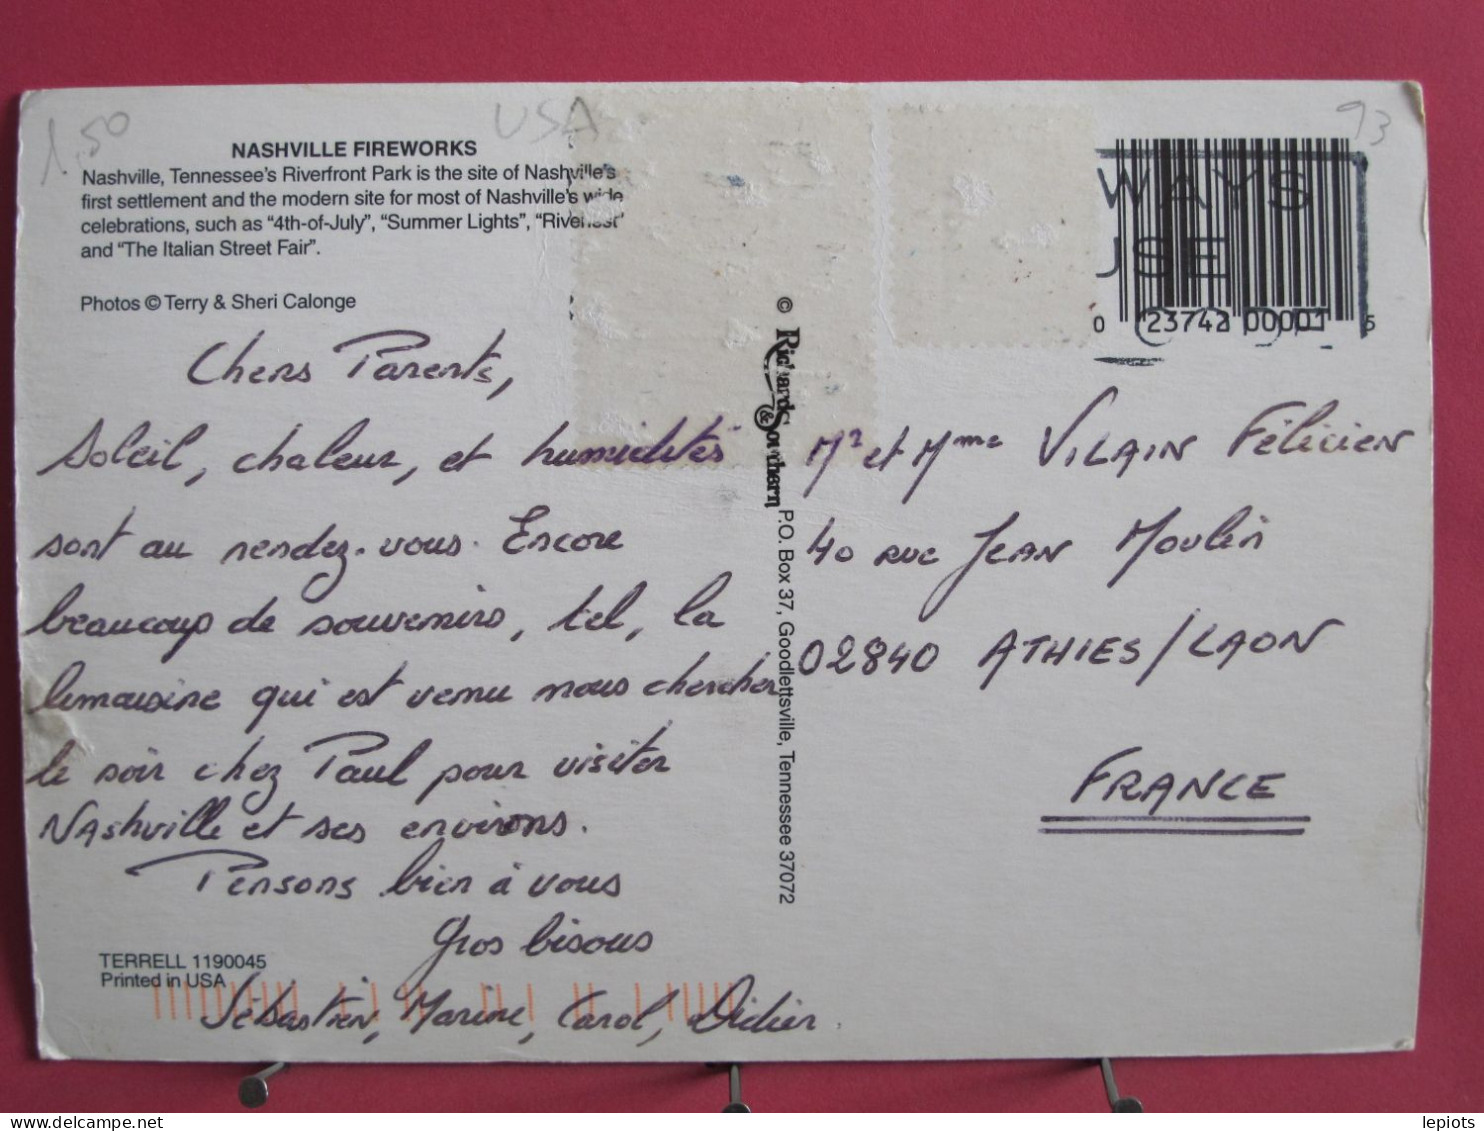 1,50
USA
93
NASHVILLE FIREWORKS
Nashville, Tennessee's Riverfront Park is the site of Nashville's
first settlement and the modern site for most of Nashville's wide
celebrations, such as "4th-of-July", "Summer Lights", "Riverfest"
and "The Italian Street Fair".
Photos © Terry & Sheri Calonge
Chers Parents,
Soleil, chaleur, et humidités
sont au rendez-vous. Encore
beaucoup de souvenirs, tel, la
limousine qui est venu nous chercher
le soir chez Paul pour visiter
Nashville et ses environs.
Pensons bien à vous
Gros bisous
Sébastien, Marine, Carol, Didier.
TERRELL 1190045
Printed in USA
© Richards & Southern P.O. Box 37, Goodlettsville, Tennessee 37072
WAYS
USE
0 23742 00001 5
Mr et Mme VILAIN Félicien
40 RUE JEAN Moulin
02840 ATHIES/LAON
FRANCE
delcampe.net
lepiots